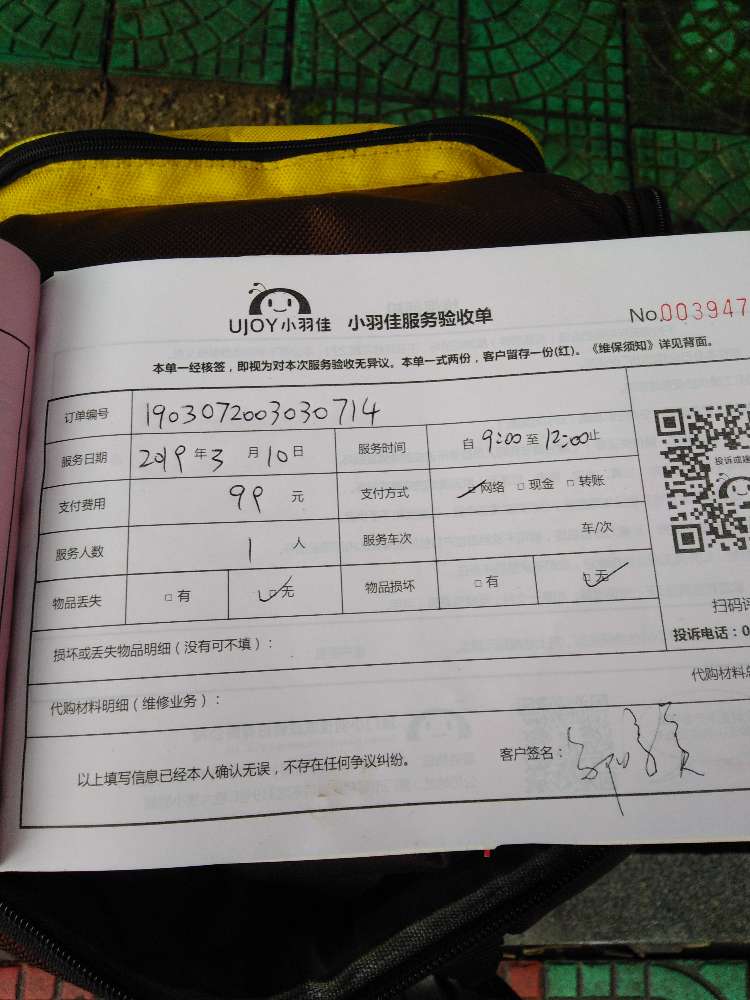 UJOY小羽佳 小羽佳服务验收单 No.003947
本单一经核签，即视为对本次服务验收无异议。本单一式两份，客户留存一份(红)。《维保须知》详见背面。
订单编号 1903072003030714
服务日期 2019年3月10日 服务时间 自9:00至12:00止
支付费用 99元 支付方式 □网络 □现金 □转账
服务人数 1人 服务车次 车/次
物品丢失 □有 □无 物品损坏 □有 □无
投诉或建
扫码评
投诉电话：0
损坏或丢失物品明细（没有可不填）：
代购材料明细（维修业务）： 代购材料总
以上填写信息已经本人确认无误，不存在任何争议纠纷。 客户签名：